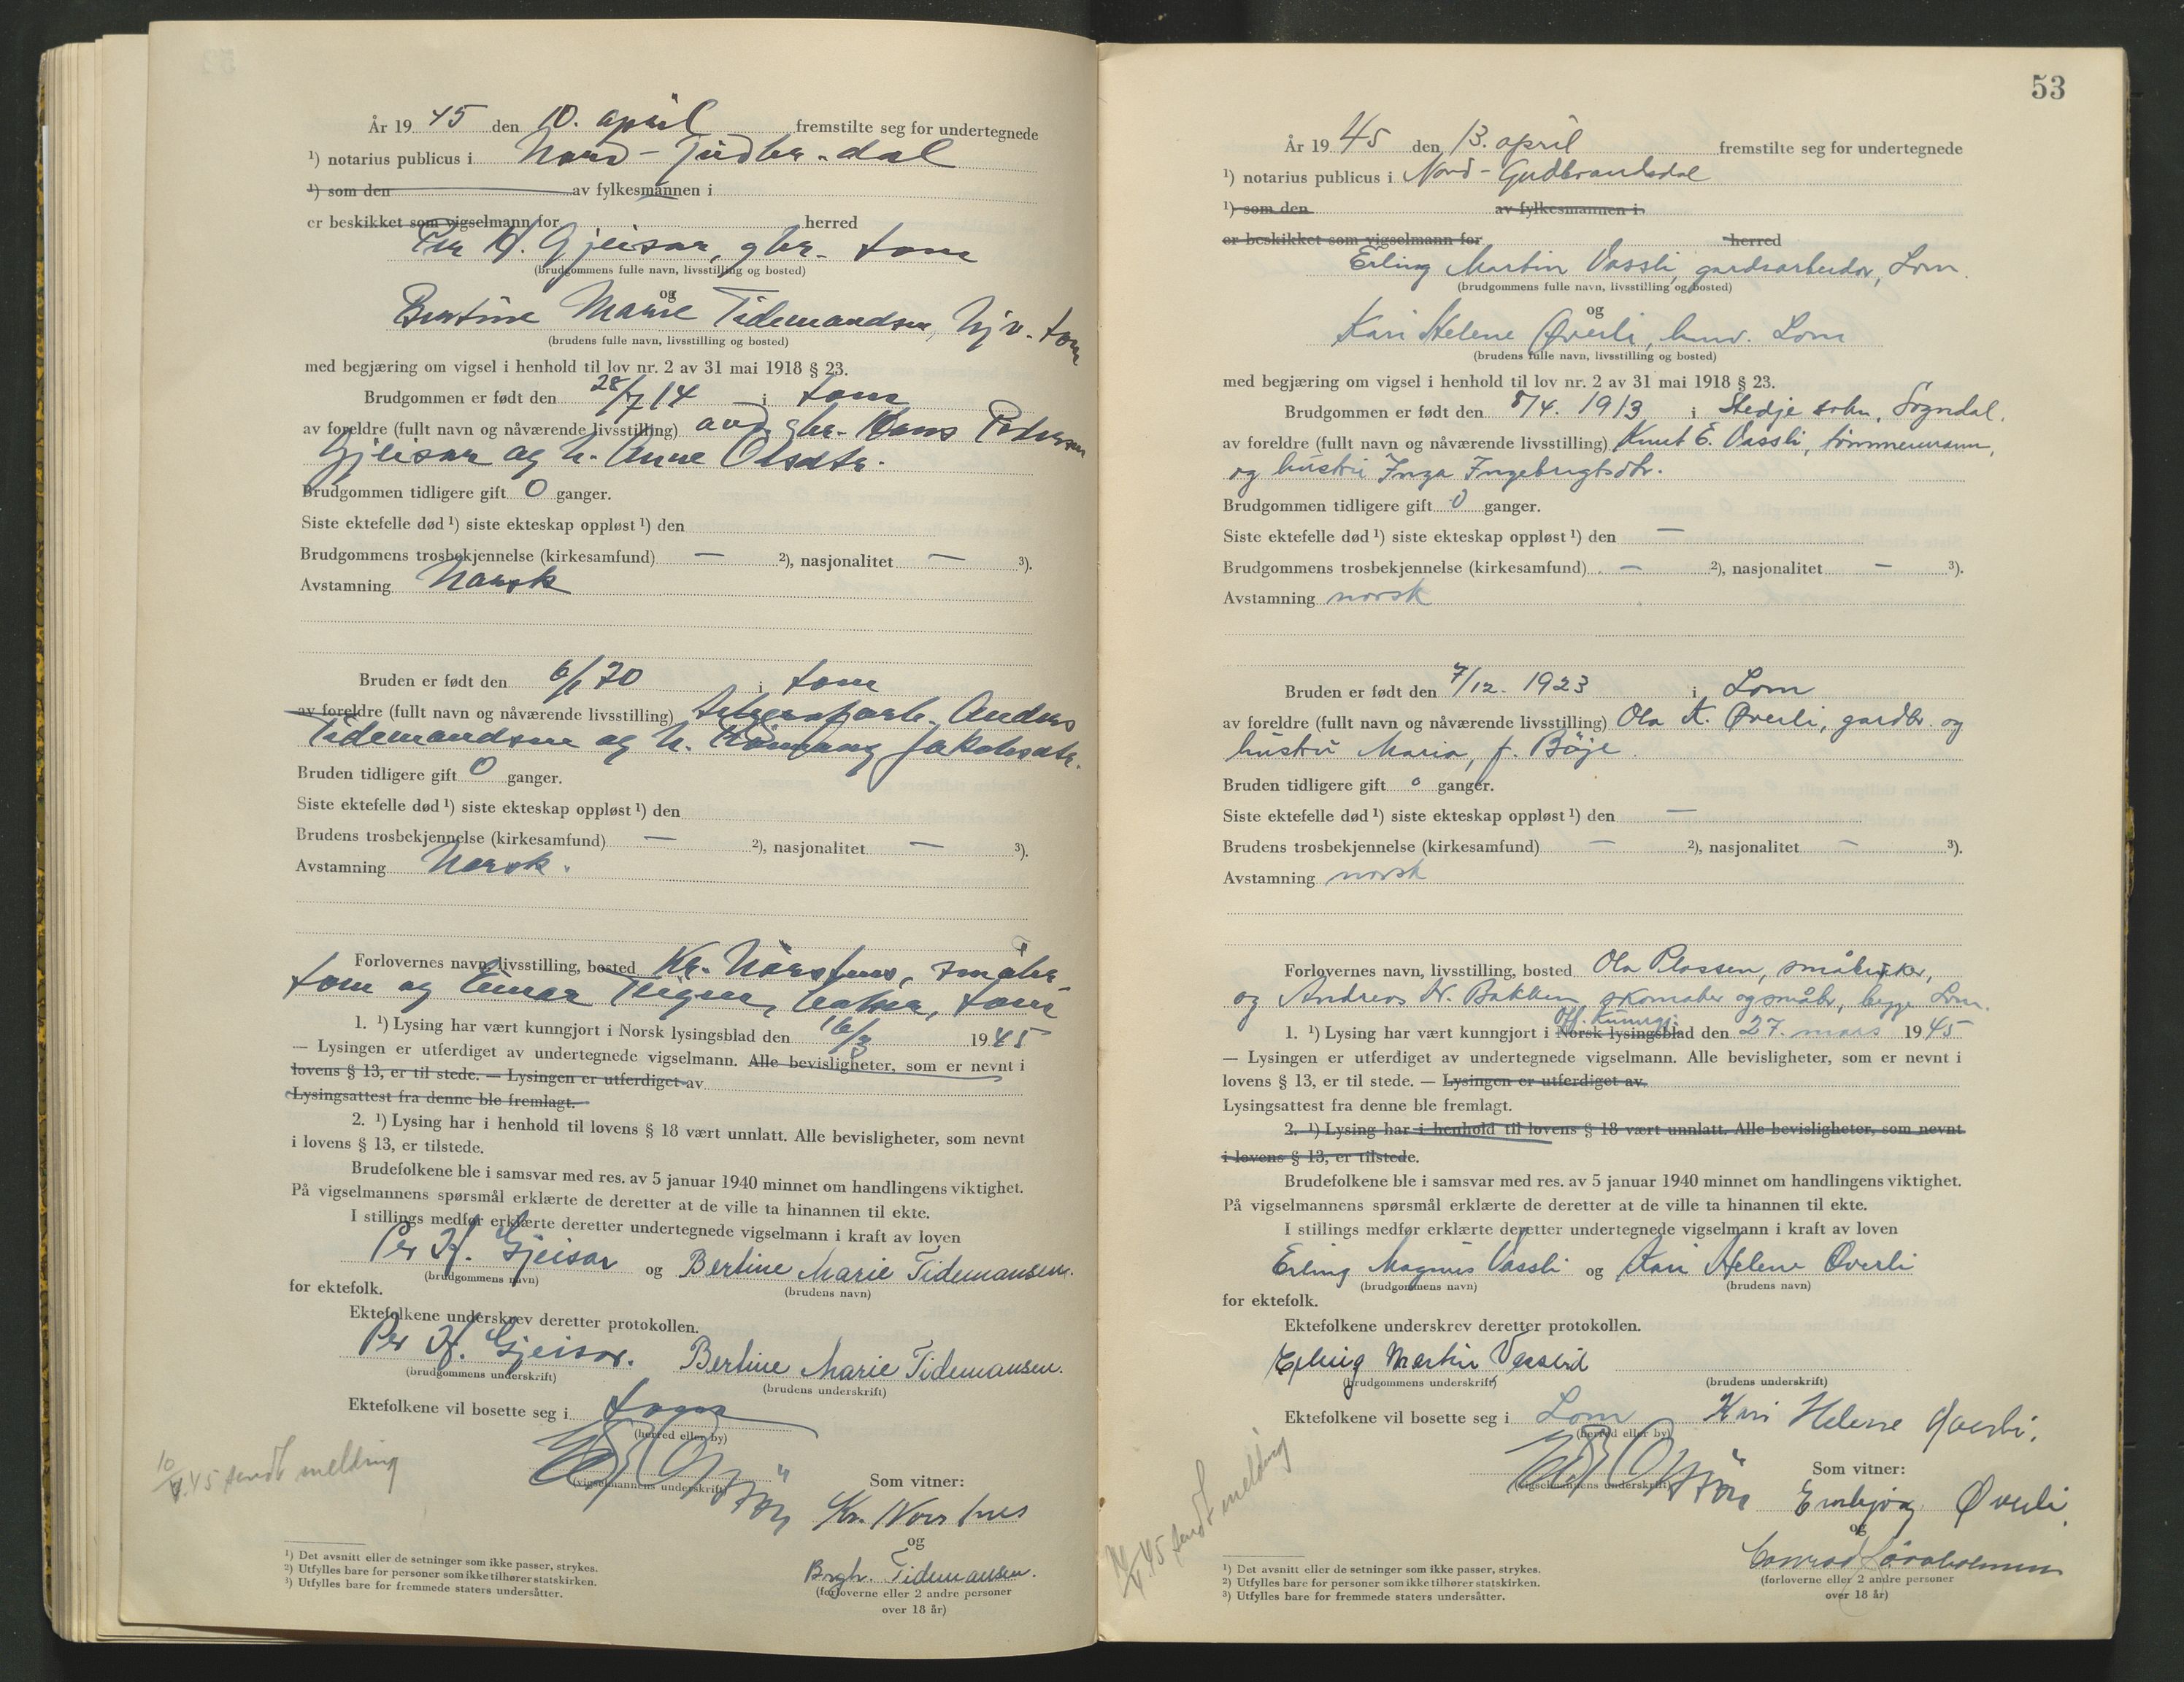 År 19 45 den 10. april fremstilte seg for undertegnede
¹) notarius publicus i Nord-Gudbr.dal
¹) som den av fylkesmannen i
er beskikket som vigselmann for herred
Per H. Gjeisar, gbr. Lom
(brudgommens fulle navn, livsstilling og bosted)
og
Bertine Marie Tidemandsen, hjv. Lom
(brudens fulle navn, livsstilling og bosted)
med begjæring om vigsel i henhold til lov nr. 2 av 31 mai 1918 § 23.
Brudgommen er født den 28/7 14 i Lom
av foreldre (fullt navn og nåværende livsstilling) avd. gbr. Hans Pedersen
Gjeisar og h. Anne Olsdtr.
Brudgommen tidligere gift 0 ganger.
Siste ektefelle død ¹) siste ekteskap oppløst ¹) den
Brudgommens trosbekjennelse (kirkesamfund) — ²), nasjonalitet — ³).
Avstamning Norsk
Bruden er født den 6/1 20 i Lom
av foreldre (fullt navn og nåværende livsstilling) Anders
Tidemandsen og h. Jakobsdtr.
Bruden tidligere gift 0 ganger.
Siste ektefelle død ¹) siste ekteskap oppløst ¹) den
Brudens trosbekjennelse (kirkesamfund) — ²), nasjonalitet — ³).
Avstamning Norsk.
Forlovernes navn, livsstilling, bosted Kr. Norstnes, småbr.
Lom og Einar Teigen, Lom
1. ¹) Lysing har vært kunngjort i Norsk lysingsblad den 16/3 1945
— Lysingen er utferdiget av undertegnede vigselmann. Alle bevisligheter, som er nevnt i
lovens § 13, er til stede. — Lysingen er utferdiget av
Lysingsattest fra denne ble fremlagt.
2. ¹) Lysing har i henhold til lovens § 18 vært unnlatt. Alle bevisligheter, som nevnt
i lovens § 13, er tilstede.
Brudefolkene ble i samsvar med res. av 5 januar 1940 minnet om handlingens viktighet.
På vigselmannens spørsmål erklærte de deretter at de ville ta hinannen til ekte.
I stillings medfør erklærte deretter undertegnede vigselmann i kraft av loven
Per H. Gjeisar og Bertine Marie Tidemansen.
(brudgommens navn) (brudens navn)
for ektefolk.
Ektefolkene underskrev deretter protokollen.
Per H. Gjeisar. Bertine Marie Tidemansen.
(brudgommens underskrift) (brudens underskrift)
Ektefolkene vil bosette seg i Lom
(herred eller by)
10/4.45 sendt melding
(vigselmannens underskrift)
Som vitner:
Kr. Norstnes
og
Brgh. Tidemansen.
(forloverne eller 2 andre personer
over 18 år)
¹) Det avsnitt eller de setninger som ikke passer, strykes.
²) Utfylles bare for personer som ikke tilhører statskirken.
³) Utfylles bare for fremmede staters undersåtter.
53
År 19 45 den 13. april fremstilte seg for undertegnede
¹) notarius publicus i Nord-Gudbrandsdal
¹) som den av fylkesmannen i
er beskikket som vigselmann for herred
Erling Martin Vassli, gardsarbeider, Lom.
(brudgommens fulle navn, livsstilling og bosted)
og
Kari Helene Øverli, husv. Lom
(brudens fulle navn, livsstilling og bosted)
med begjæring om vigsel i henhold til lov nr. 2 av 31 mai 1918 § 23.
Brudgommen er født den 8/4. 1913 i Stedje sokn, Sogndal.
av foreldre (fullt navn og nåværende livsstilling) Knut E. Vassli, tømmermann,
og hustru Inga Ingebrigtsdtr.
Brudgommen tidligere gift 0 ganger.
Siste ektefelle død ¹) siste ekteskap oppløst ¹) den —
Brudgommens trosbekjennelse (kirkesamfund) — ²), nasjonalitet — ³).
Avstamning norsk
Bruden er født den 7/12. 1923 i Lom
av foreldre (fullt navn og nåværende livsstilling) Ola K. Øverli, gardbr. og
hustru Maria, f. Bøje.
Bruden tidligere gift 0 ganger.
Siste ektefelle død ¹) siste ekteskap oppløst ¹) den —
Brudens trosbekjennelse (kirkesamfund) — ²), nasjonalitet — ³).
Avstamning norsk
Forlovernes navn, livsstilling, bosted Ola Plassen, småbruker,
og Andreas N. Bakken, skomaker og småbr, begge Lom.
Off. Kunngj.
1. ¹) Lysing har vært kunngjort i Norsk lysingsblad den 27. mars 1945
— Lysingen er utferdiget av undertegnede vigselmann. Alle bevisligheter, som er nevnt i
lovens § 13, er til stede. — Lysingen er utferdiget av
Lysingsattest fra denne ble fremlagt.
2. ¹) Lysing har i henhold til lovens § 18 vært unnlatt. Alle bevisligheter, som nevnt
i lovens § 13, er tilstede.
Brudefolkene ble i samsvar med res. av 5 januar 1940 minnet om handlingens viktighet.
På vigselmannens spørsmål erklærte de deretter at de ville ta hinannen til ekte.
I stillings medfør erklærte deretter undertegnede vigselmann i kraft av loven
Erling Magnus Vassli og Kari Helene Øverli
(brudgommens navn) (brudens navn)
for ektefolk.
Ektefolkene underskrev deretter protokollen.
Erling Martin Vasslid
(brudgommens underskrift) (brudens underskrift)
Ektefolkene vil bosette seg i Lom Kari Helene Øverli.
(herred eller by)
(vigselmannens underskrift)
Som vitner:
Embjørg Øverli.
og
Conrad
(forloverne eller 2 andre personer
over 18 år)
45 sendt melding
¹) Det avsnitt eller de setninger som ikke passer, strykes.
²) Utfylles bare for personer som ikke tilhører statskirken.
³) Utfylles bare for fremmede staters undersåtter.